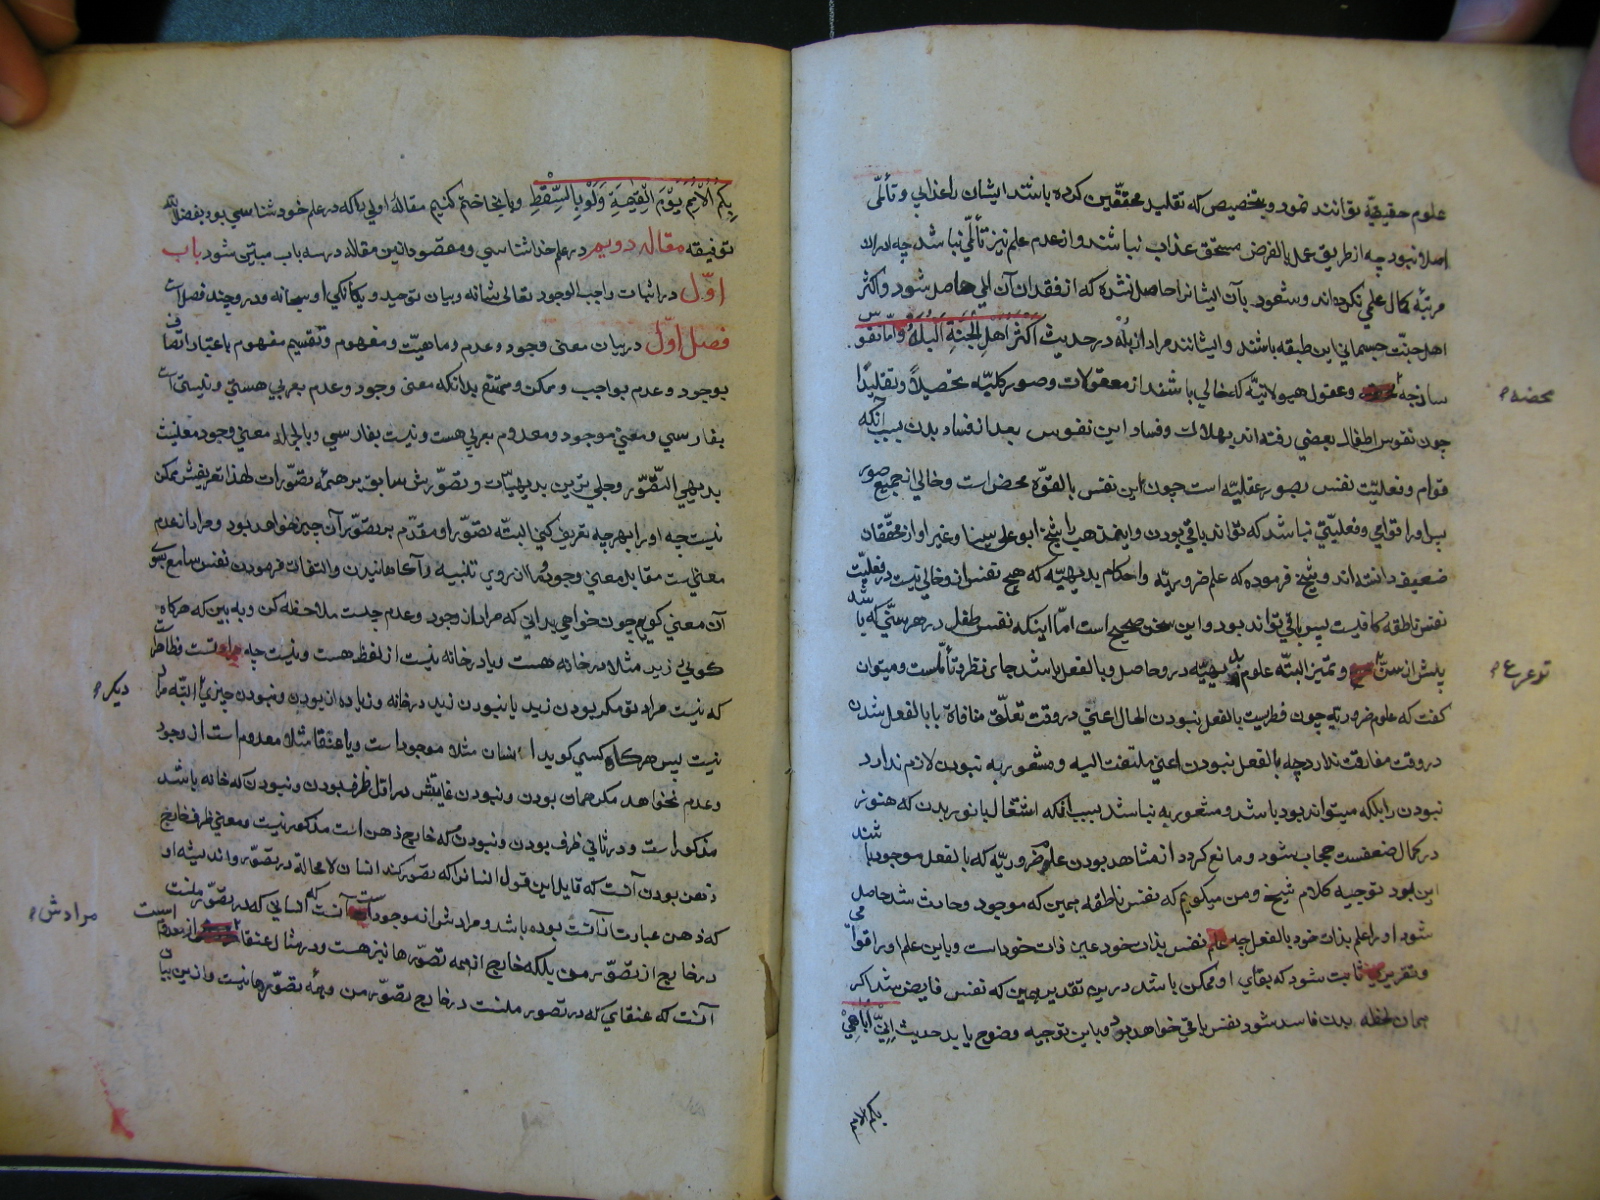 علوم حقیقیّه توانند نمود و بتخصیص که تقلید محقّقین کرده باشند ایشان را عذابی و تألّمی
اصلا نبود چه از طریق عمل بالفرض مستحق عذاب نباشند و از عدم علم نیز تألّمی نباشد چه ادراک
مرتبهٔ کمال علمی نکرده‌اند و شعور بآن ایشانرا حاصل نشده که از فقدان آن المی حاصل شود و اکثر
اهل جنّت جسمانی این طبقه باشند و ایشانند مراد از بُله در حدیث اَکْثَرُ اَهْلِ الْجَنَّةِ اَلْبُلَهُ وامّا نفوس
ساذجه و عقول هیولانیّه که خالی باشند از معقولات و صور کلیّه تحصیلاً و تقلیدًا
محضه
چون نفوس اطفال بعضی رفته‌اند بهلاک و فساد این نفوس بعد از فساد بدن بسبب آنکه
قوام و فعلیّت نفس بصور عقلیّه است چون این نفس بالقوّه محض است و خالی از جمیع صور
پس او را قوامی و فعلیّتی نباشد که تواند باقی بودن و این مذهب را شیخ ابو علی سینا و غیر او از محقّقان
ضعیف دانسته‌اند و شیخ فرموده که علم ضروریّه و احکام بدیهیّه که هیچ نفس از و خالی نیست در فعلیّت
نفس ناطقه کافیست پس باقی تواند بود و این سخن صحیح است امّا اینکه نفس طفل در هر سنّی که باشد
پیش از سنّ و تمیز البتّه علوم بدیهیّه در و حاصل و بالفعل باشد جای نظر و تأمّلست و میتوان
ترعرع
گفت که علوم ضروریّه چون فطریست بالفعل نبودن الحال اعنی در وقت تعلّق منافاة با بالفعل شدن
در وقت مفارقت ندارد چه بالفعل نبودن اعنی ملتفت الیه و مشعور به نبودن لازم ندارد
نبودن را بلکه میتواند بود باشد و مشعور به نباشد بسبب آنکه اشتغال یا نور بدن که هنوز
در کمال ضعفست حجاب شود و مانع گردد از مشاهد بودن علوم ضروریّه که بالفعل موجود باشند
این بود توجیه کلام شیخ و من میگویم که نفس ناطقه همین که موجود و حادث شد حاصل
شود او را علم بذات خود بالفعل چه علم نفس بذات خود عین ذات خود است و باین علم او را قوامی
و تقرری ثابت شود که بقای او ممکن باشد درین تقدیر همین که نفس فایض شد اگر
همان لحظه بدن فاسد شود نفس باقی خواهد بود و باین توجیه وضوح یابد حدیث اِنّیِ اُباهِی
بکم الامم
بِکُمُ الْاُمَمَ یَوْمَ الْقِیٰمَةِ وَلَوْ بِالسِّقْطِ و باینجا ختم کنیم مقالهٔ اولی را که در علم خودشناسی بود بفضل الله
توفیقه مقاله دویم در علم خداشناسی و مقصود ازین مقاله در سه باب مبیّن شود باب
اوّل در اثبات واجب الوجود تعالی شانه و بیان توحید و یگانگی او سبحانه و درو چند فصل است
فصل اوّل در بیان معنی وجود و عدم و ماهیّت و مفهوم و تقسیم مفهوم باعتبار اتصاف
بوجود و عدم بواجب و ممکن و ممتنع بدانکه معنی وجود و عدم بعربی هستی و نیستی است
بفارسی و معنی موجود و معدوم بعربی هست و نیست بفارسی و بالجمله معنی وجود معنیست
بدیهی التصّوّر و جلی ترین بدیهیّات و تصوّرش سابق بر همهٔ تصوّرات لهذا تعریفش ممکن
نیست چه او را بهر چه تعریف کنی البتّه تصوّر او مقدّم بر تصوّر آن چیز خواهد بود و مراد از عدم
معنیست مقابل معنی وجود و از روی تنبیه و آگاهانیدن و التفات فرمودن نفس سامع بسوی
آن معنی گویم چون خواهی بدانی که مراد از وجود و عدم چیست ملاحظه کن و به بین که هرگاه
گوئی زید مثلا در خانه هست و یا در خانه نیست از لفظ هست و نیست چه مراد تست و ظاهر است
که نیست مراد تو مگر بودن زید یا نبودن زید در خانه و زیاده از بودن و نبودن چیزی البتّه مراد
دیگر
نیست پس هرگاه کسی گوید انسان مثلا موجود است و یا عنقا مثلا معدوم است از وجود
و عدم نخواهد مگر همان بودن و نبودن غایتش در اوّل ظرف بودن و نبودن که خانه باشد
مذکور است و در ثانی ظرف بودن و نبودن که خارج ذهن است مذکور نیست و معنی ظرف خارج
ذهن بودن آنست که قایل این قول انسانرا که تصّور کند انسان لا محاله در تصوّر و اندیشه او
که ذهن عبارت از آنست بوده باشد و مرادش از موجود است آنست که انسانی که در تصوّر منست
در خارج از تصوّر من بلکه خارج از همه تصوّرها نیز هست و در مثال عنقا از معدوم است
مرادش
آنست که عنقای که در تصّور منست در خارج تصوّر من و همهٔ تصوّرها نیست و ازین بیان